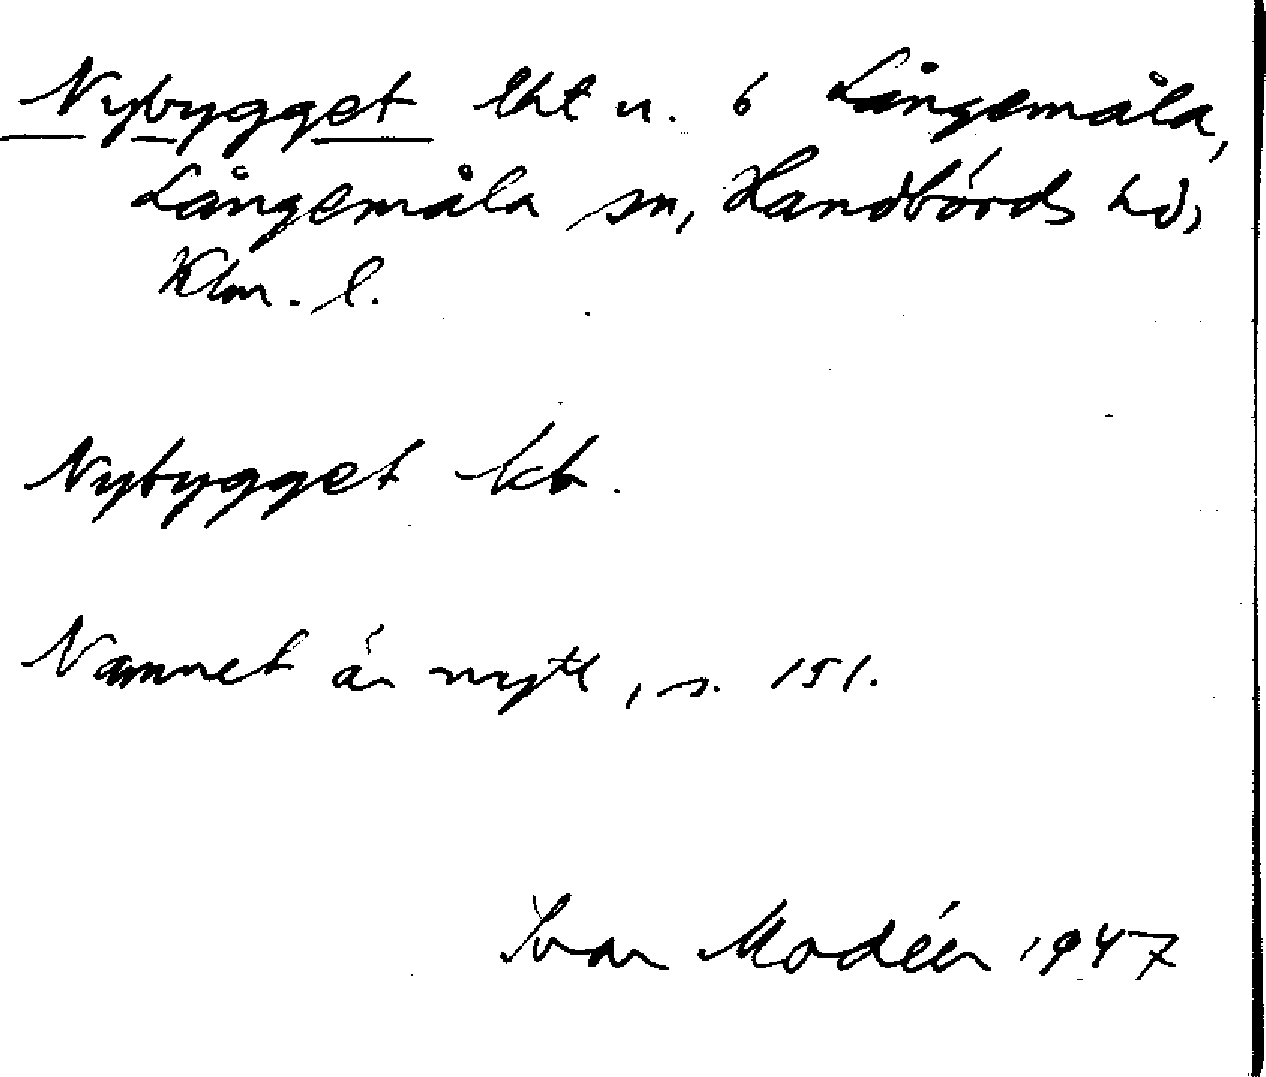 Nybygget lht u. 6 Långemåla,
Långemåla sn, Handbörds hd,
Klm. l.
Nybygget kb.
Namnet är nytt, s. 151.
Ivar Modéer 1947